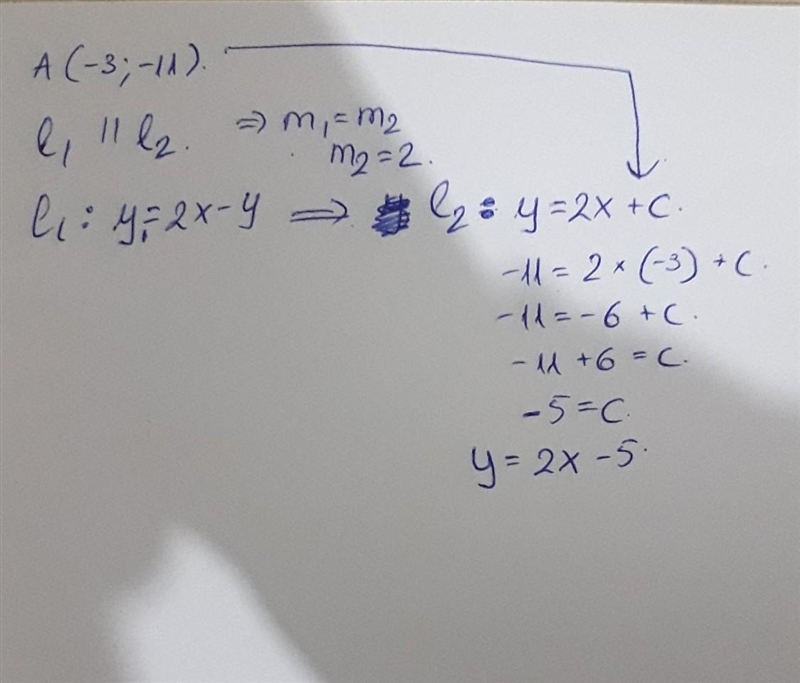 A (-3; -11).
l₁ ∥ l₂. ⇒ m₁ = m₂
m₂ = 2.
l₁ : y = 2x - y ⇒ l₂ : y = 2x + C.
-11 = 2 × (-3) + C.
-11 = -6 + C.
-11 + 6 = C.
-5 = C.
y = 2x - 5.